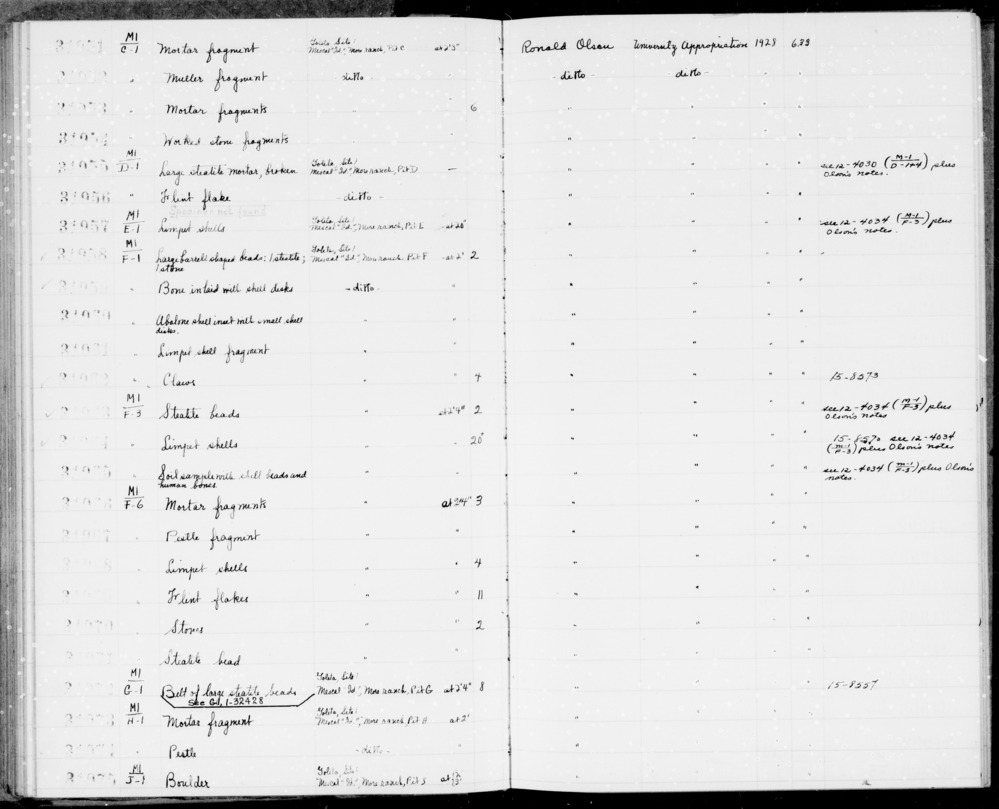 M1
C-1 Mortar fragment Goleta, Site 1 Mescal "Id.", More ranch, Pit C at 2'3" Ronald Olson University Appropriation 1928 633
" Muller fragment ditto - - ditto - ditto -
" Mortar fragments " " 6 " " "
" Worked stone fragments " " " " "
M1
D-1 Large steatite mortar, broken Goleta, Site 1 Mescal "Id." More ranch, Pit D — " " " see 12-4030 (M-1/D-1+4) plus
Olson's notes.
31956 " Flint flake - ditto - " " " "
Specimen not found
31957 M1
E-1 Limpet shells Goleta, Site 1 Mescal "Id.", More ranch, Pit E at 20" " " " see 12-4034 (M-1/F-3) plus
Olson's notes.
31958 M1
F-1 Large barrell shaped beads: 1 steatite; Goleta, Site 1 Mescal "Id.", More ranch, Pit F at 2' 2 " " " "
1 stone
" Bone inlaid with shell disks - ditto - " " " "
" Abalone shell inset with small shell
disks.
" Limpet shell fragment " " " " "
" Claws " " 4 " " " 15-8573
M1
F-3 Steatite beads " at 2'4" 2 " " " see 12-4034 (M-1/F-3) plus
Olson's notes
" Limpet shells " " 20 " " " 15-8570 see 12-4034
(M-1/F-3) plus Olson's notes
" Soil sample with shell beads and " " " " " see 12-4034 (M-1/F-3) plus Olson's
human bones. notes.
M1
F-6 Mortar fragments " at 2'4" 3 " " "
" Pestle fragment " " " " "
" Limpet shells " " 4 " " "
" Flint flakes " " 11 " " "
" Stones " " 2 " " "
" Steatite bead " " " " "
M1
G-1 Belt of large steatite beads Goleta, Site 1 Mescal "Id.", More ranch, Pit G at 2'4" 8 " " " 15-8557
See Gd. 1-32428
M1
H-1 Mortar fragment Goleta, Site 1 Mescal "Id.", More ranch, Pit H at 2' " " "
" Pestle - ditto - " " " "
M1
J-1 Boulder Goleta, Site 1 Mescal "Id.", More ranch, Pit J " " "